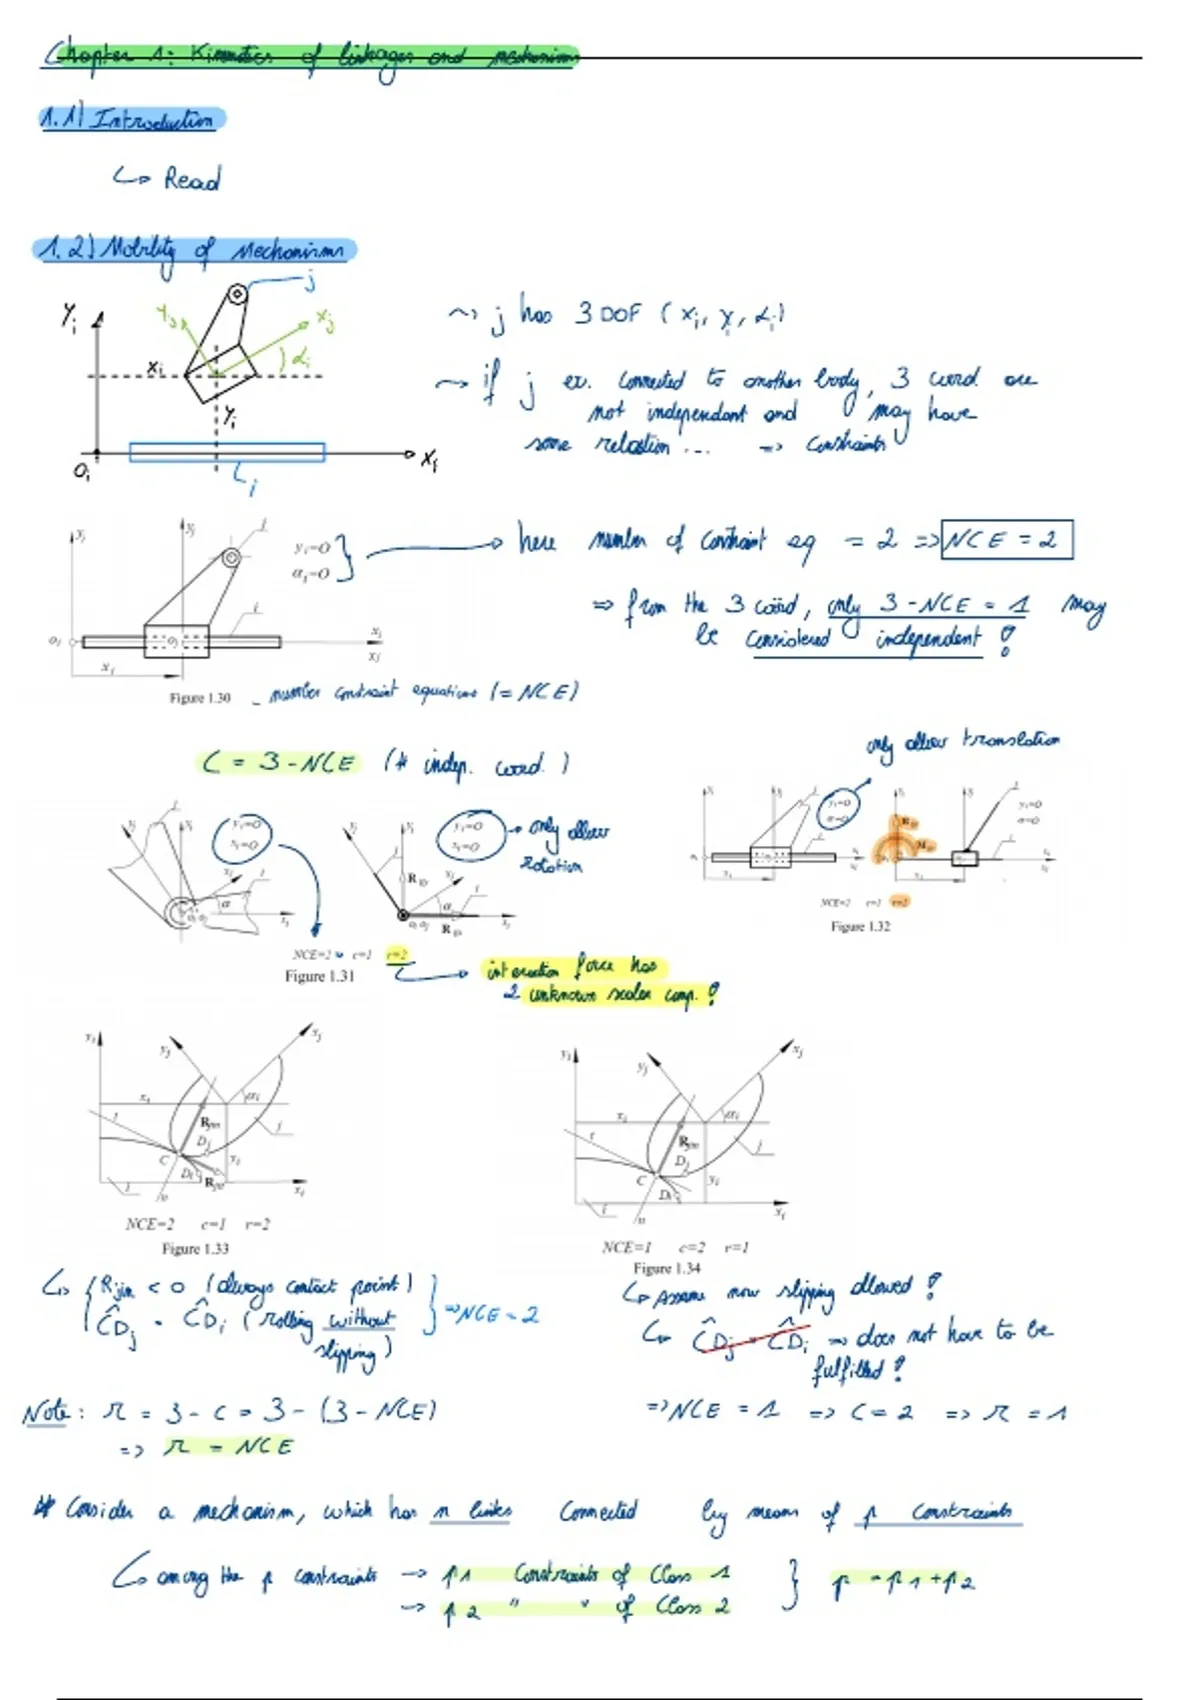 Chapter 1: Kinematics of linkages and mechanisms
1.1) Introduction
↳ Read
1.2) Mobility of Mechanisms
j
Yi
Yj
Xj
αi
Xi
Yi
Oi
Xi
i
~> j has 3 DOF ( Xi, Yi, αi)
~> if j ex. connected to another body, 3 coord. are
not independant and may have
some relation ... => constraints
yi=0
αj=0
here number of constraint eq = 2 => NCE = 2
=> from the 3 coörd, only 3 - NCE = 1 may
be considered independent !
Figure 1.30
_ number constraint equations (= NCE)
C = 3 - NCE (# indep. coord.)
only allow translation
yi=0
xi=0
yi=0
xi=0
only allow
rotation
NCE=2 c=1 r=2
Figure 1.31
NCE=2 c=1 r=2
Figure 1.32
interaction force has
2 unknown scalar comp. !
NCE=2 c=1 r=2
Figure 1.33
NCE=1 c=2 r=1
Figure 1.34
↳ { Rjin < 0 (always contact point)
ĈDj = ĈDi (rolling without
slipping)
} => NCE = 2
↳ Assume now slipping allowed !
↳ ĈDj = ĈDi => does not have to be
fulfilled !
=> NCE = 1 => C = 2 => r = 1
Note: r = 3 - C = 3 - (3 - NCE)
=> r = NCE
# Consider a mechanism, which has n links connected by means of p constraints
↳ among the p constraints -> p1 constraints of Class 1
-> p2 " " of Class 2
} p = p1 + p2